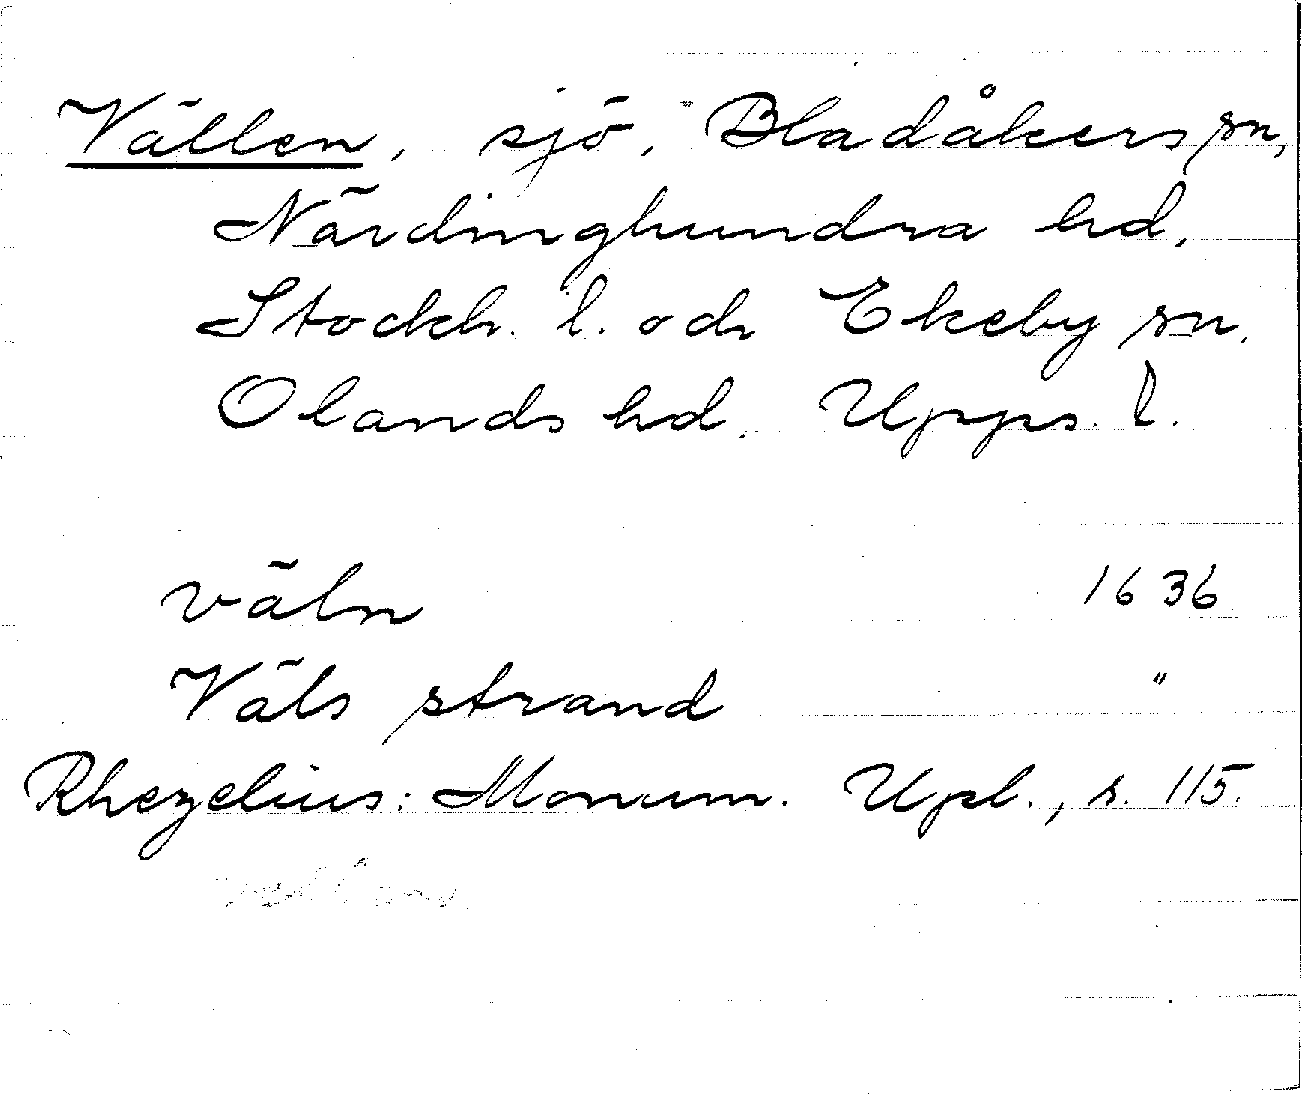 Vällen, sjö, Bladåkers sn,
Närdinghundra hd,
Stockh. l. och Ekeby sn.
Olands hd. Upps. l.
väln 1636
Väls strand "
Rhezelius: Monum. Upl., s. 115.